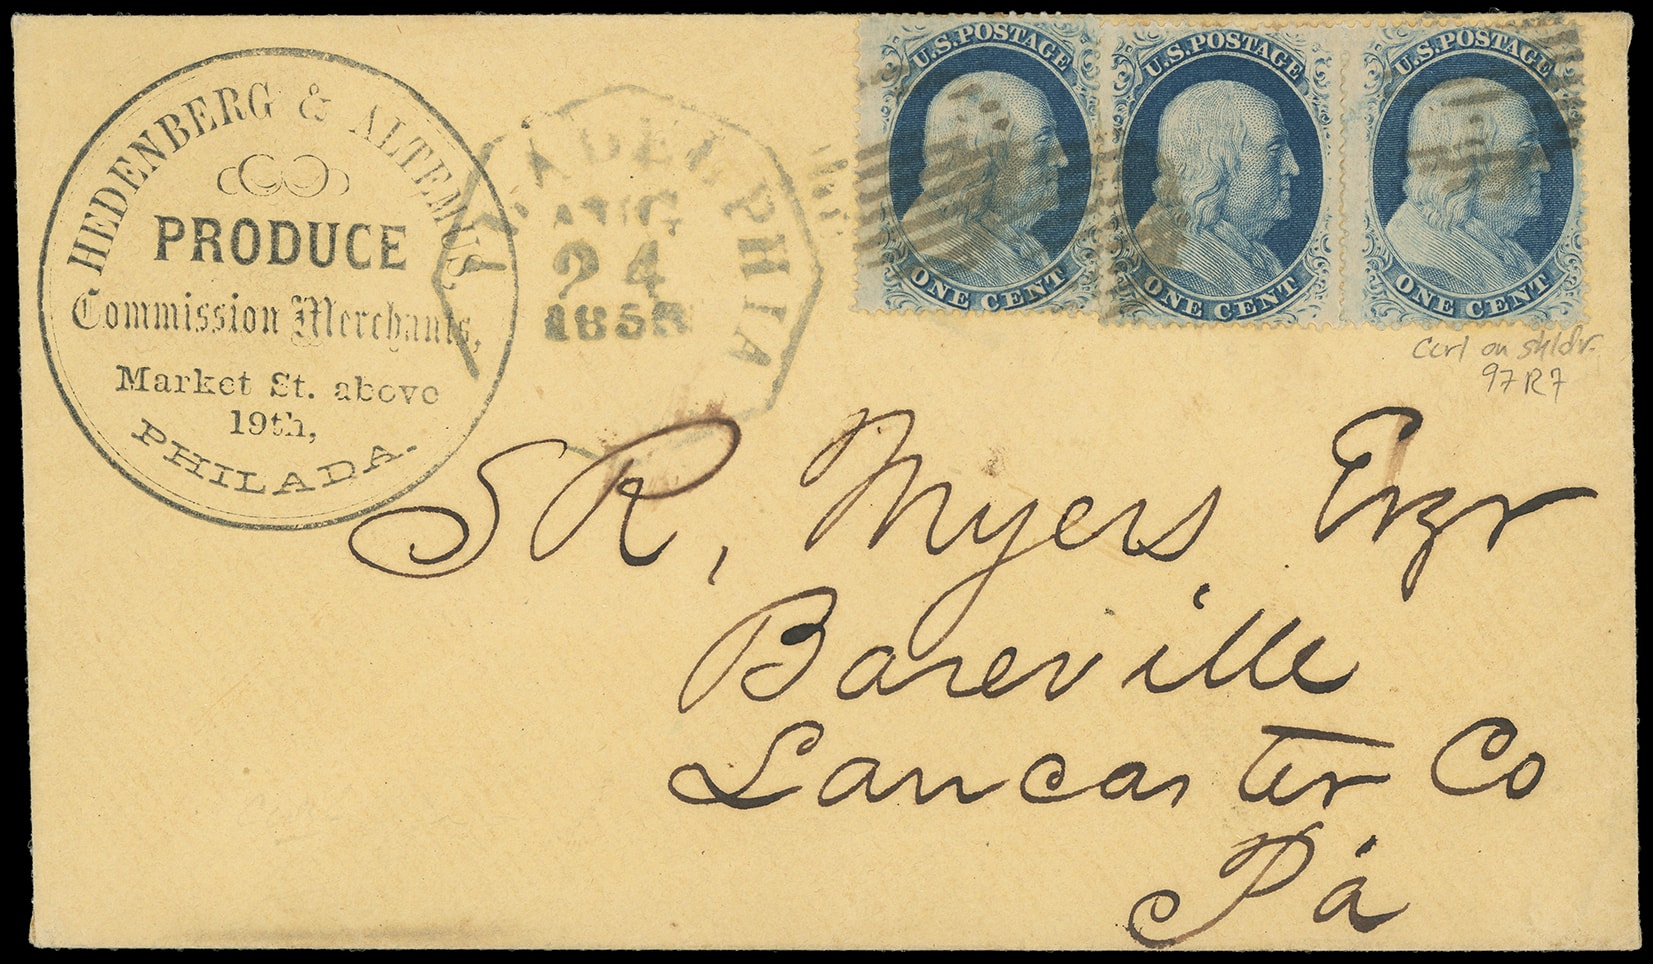 HEDENBERG & ALTEMUS,
PRODUCE
Commission Merchants,
Market St. above
19th,
PHILADA.
PHILADELPHIA
AUG
24
U.S. POSTAGE
ONE CENT
U.S. POSTAGE
ONE CENT
U.S. POSTAGE
ONE CENT
Curl on shldr.
97R7
S R, Myers Esqr
Bareville
Lancaster Co
Pa